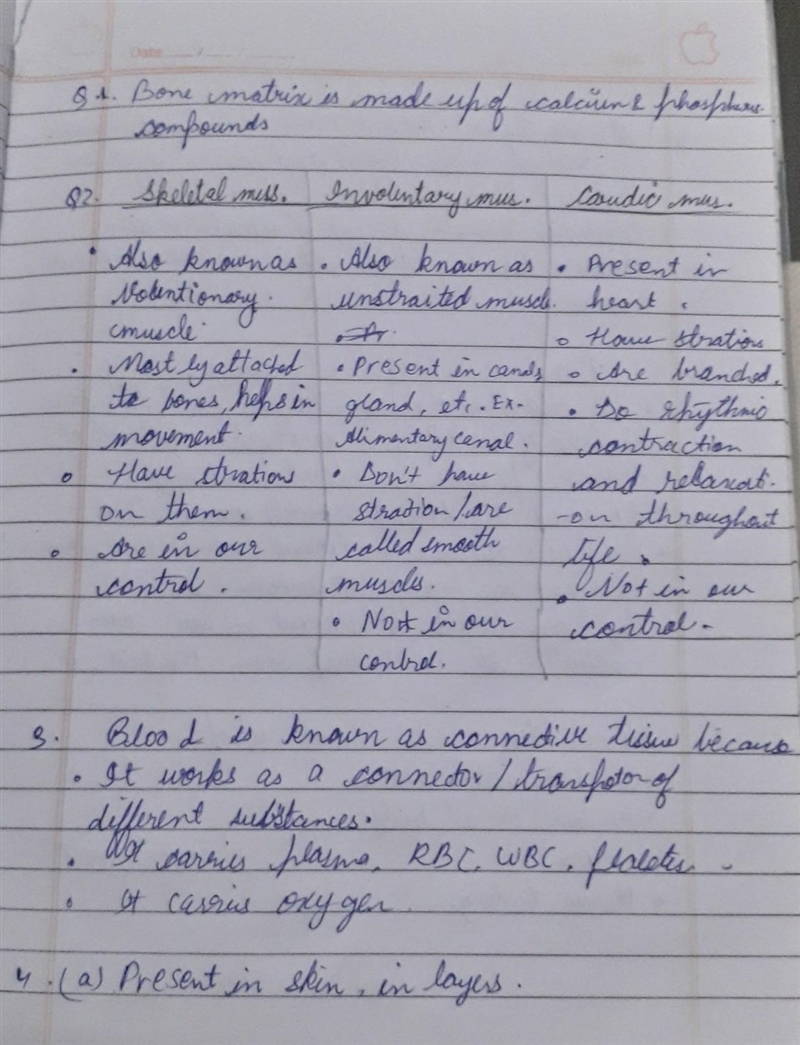 Date ...../...../.....
Q1. Bone matrix is made up of calcium & phosphorus
compounds
Q2. Skeletal mus. Involuntary mus. Caudic mus.
• Also known as • Also known as • Present in
Volentionary unstraited muscle. heart.
muscle.
• Have strations
• Mostly attached • Present in canals • Are branched.
to bones, helps in gland, etc. Ex- • Do rhythmic
movement. Alimentary canal. contraction
• Have strations • Don't have and relaxati-
on them. stration/are -on throughout
• Are in our called smooth life.
control. muscles. • Not in our
• Not in our control.
control.
3. Blood is known as connective tissue because
• It works as a connector/transpotor of
different substances.
• It carries plasma, RBC, WBC, platetes.
• It carries oxygen.
4. (a) Present in skin, in layers.